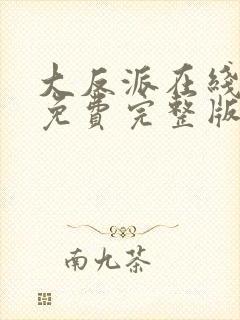 大反派在线
免費完整版
南九茶